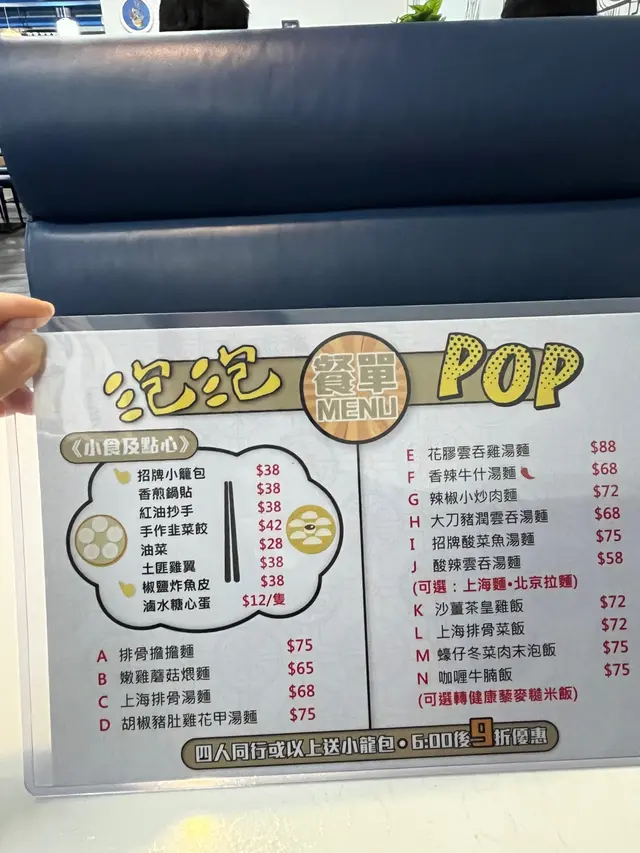 泡泡 餐單 POP
MENU
《小食及點心》
招牌小籠包 $38
香煎鍋貼 $38
紅油抄手 $38
手作韭菜餃 $42
油菜 $28
土匪雞翼 $38
椒鹽炸魚皮 $38
滷水糖心蛋 $12/隻
A 排骨擔擔麵 $75
B 嫩雞蘑菇煨麵 $65
C 上海排骨湯麵 $68
D 胡椒豬肚雞花甲湯麵 $75
E 花膠雲吞雞湯麵 $88
F 香辣牛什湯麵 $68
G 辣椒小炒肉麵 $72
H 大刀豬潤雲吞湯麵 $68
I 招牌酸菜魚湯麵 $75
J 酸辣雲吞湯麵 $58
(可選：上海麵•北京拉麵)
K 沙薑茶皇雞飯 $72
L 上海排骨菜飯 $72
M 蠔仔冬菜肉末泡飯 $75
N 咖喱牛腩飯 $75
(可選轉健康藜麥糙米飯)
四人同行或以上送小籠包•6:00後9折優惠